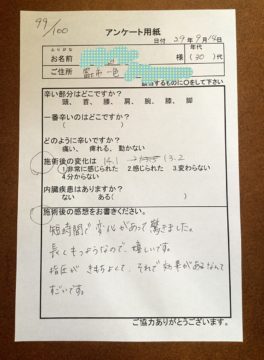 99/100
アンケート用紙
日付 29年9月14日
ふりがな
お名前 様
年代
(30)代
ご住所 富士市一色
該当するものに○をして下さい
辛い部分はどこですか?
頭、首、膝、肩、腕、腰、脚
一番辛いのはどこですか?
( )
どのように辛いですか?
痛い、痺れる、動かない
施術後の変化は 14.1 → 13.2
1.非常に感じられた 2.感じられた 3.変わらない
4.分からない
内臓疾患はありますか?
ない ある( )
施術後の感想をお書きください。
短時間で変化があって驚きました。
長くもつようなので、嬉しいです。
指圧がきもちよくて、それで効果があるなんて
すごいです。
ご協力ありがとうございます。